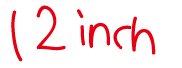 12 inch